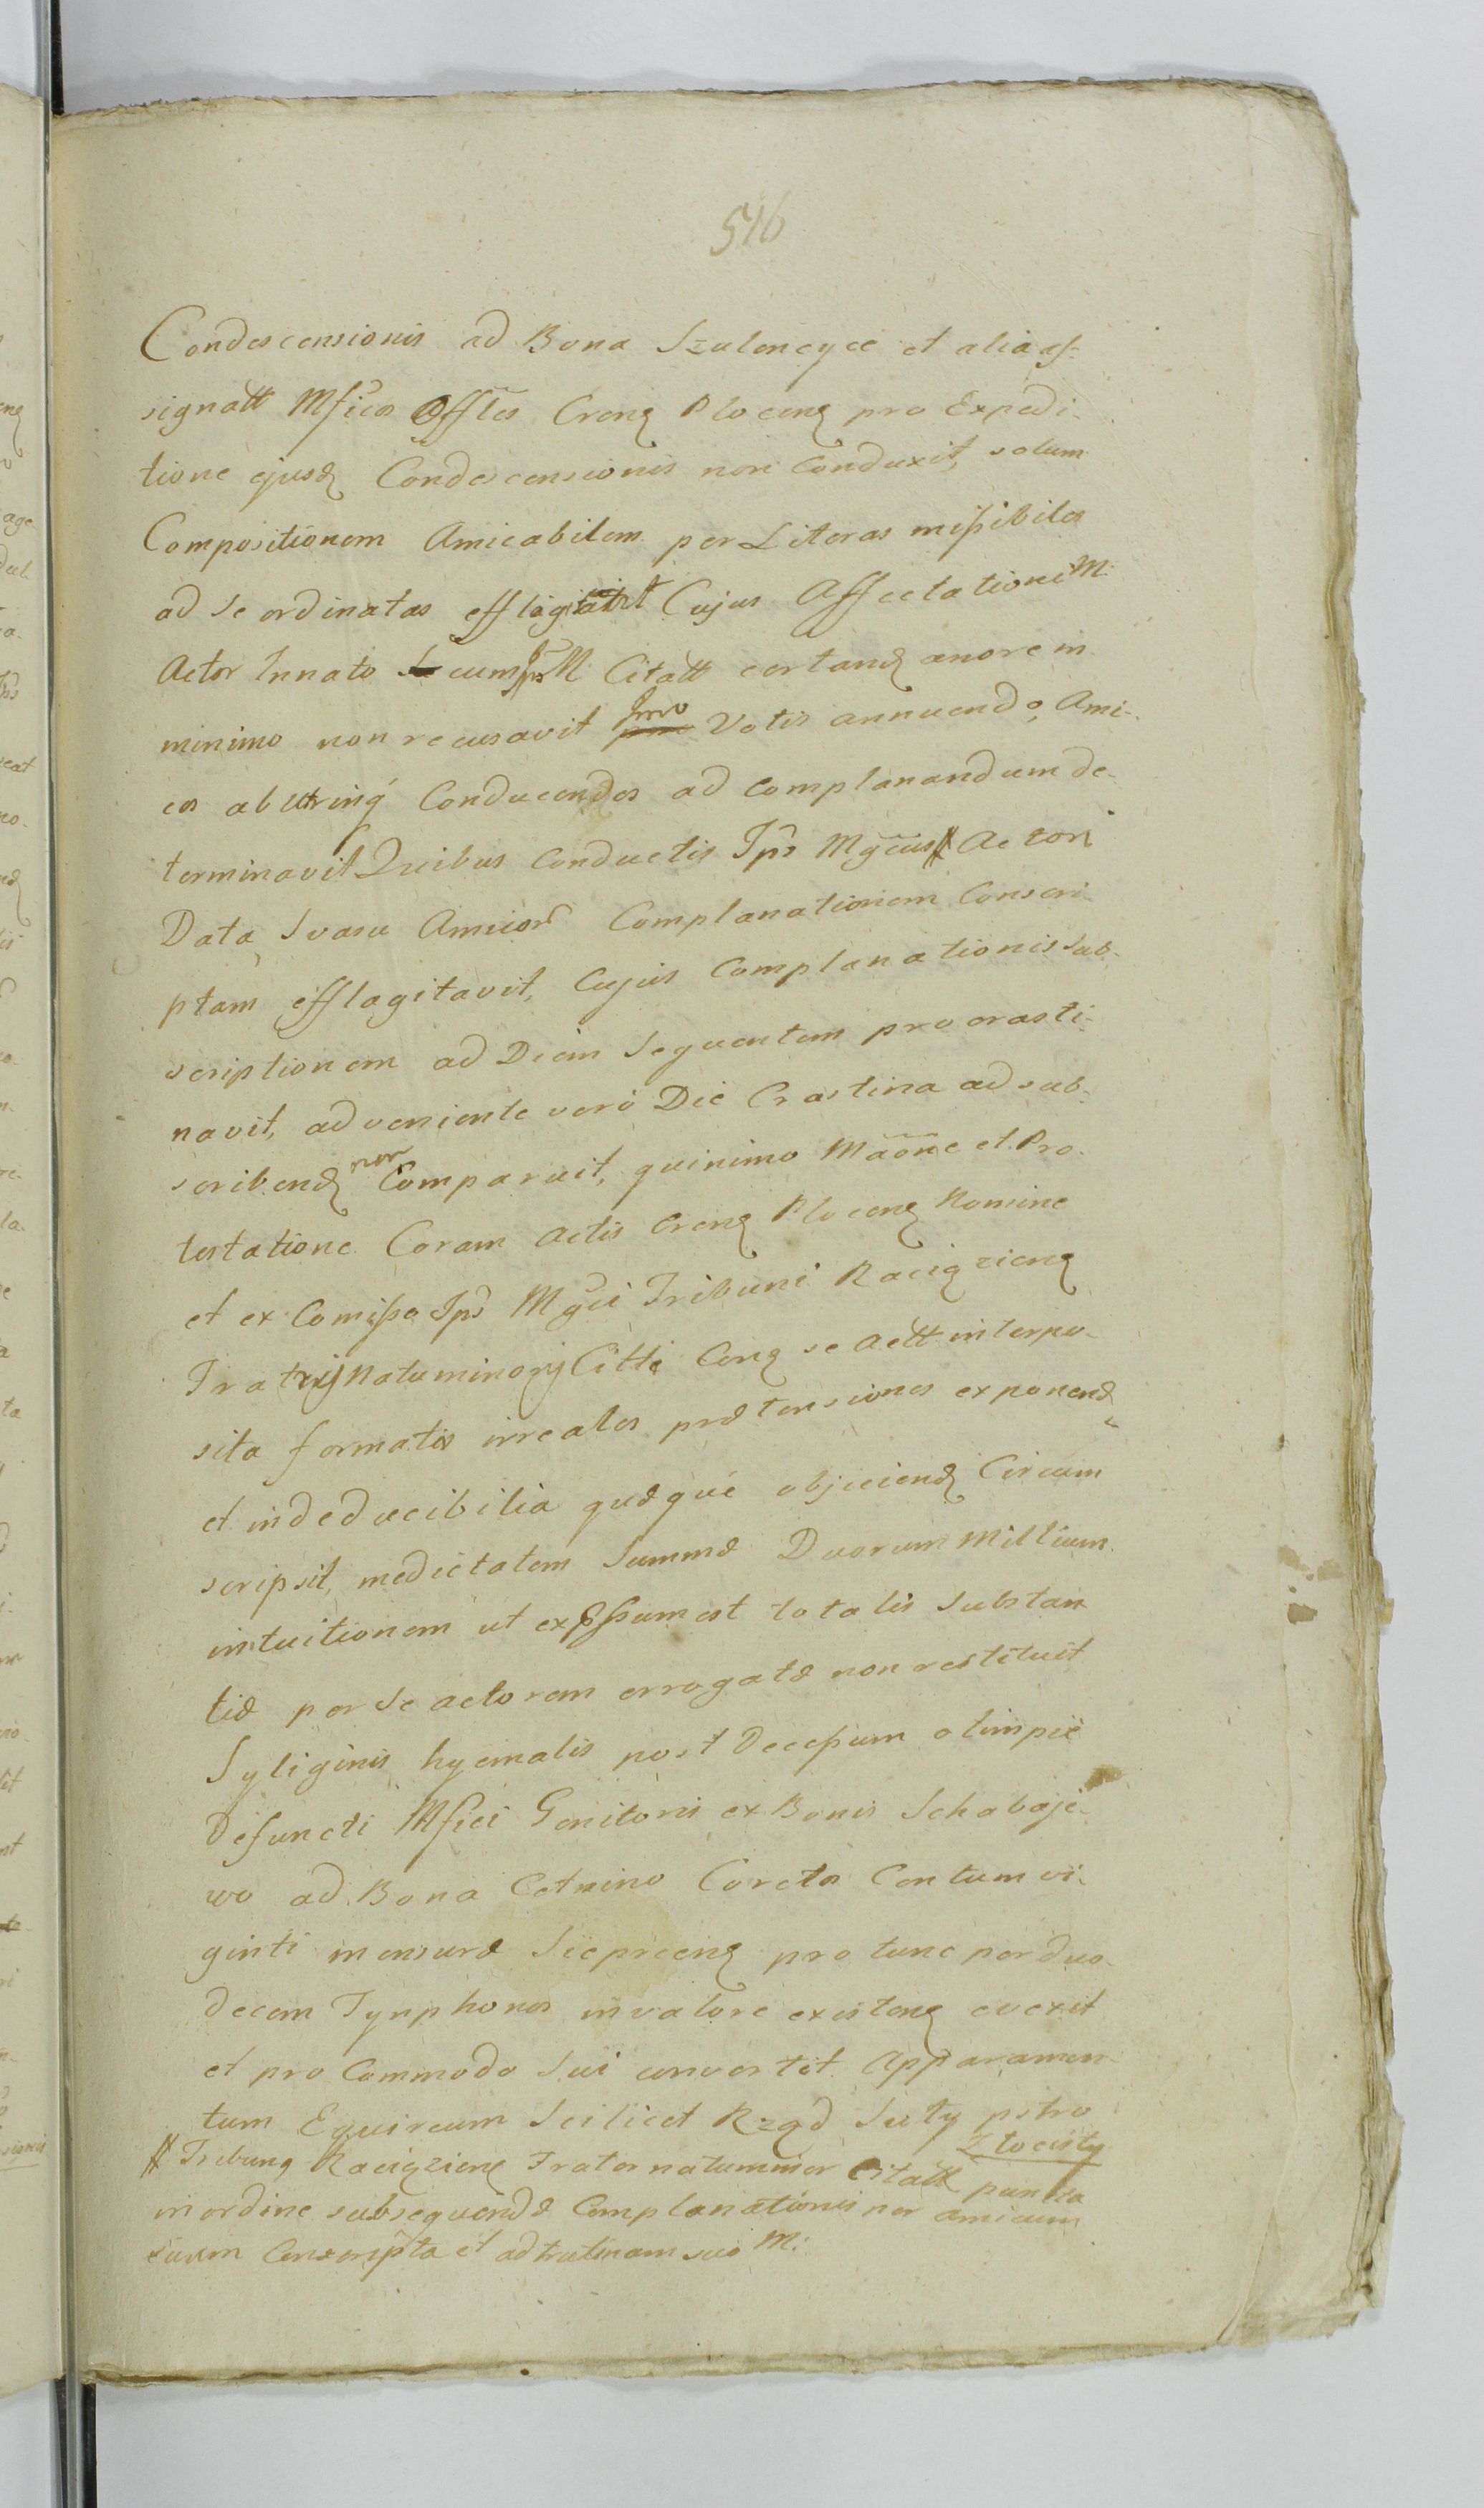 516
Condescensionis ad Bona Szulencyce et alia as-
signatt Mfica Offles Crenȝ Plocenȝ pro Expedi-
tione ejusdȝ Condescensionis non Conduxit, solum
Compositionem Amicabilem per Literas mißibiles
ad Se ordinatas efflagitavit Cujus Affectationi M:
Actor Innato cum M: Citatt certandȝ amore in
minimo non recusavit Imo Votis annuendo, Ami-
cos ab utrinq́ Conducendos ad complanandum de-
terminavit Quibus Conductis Ips Mgcus # Actori
Data Svasu Amicor Complanationem Conscri-
ptam efflagitavit, Cujus Complanationis Sub-
scriptionem ad Diem Sequentem procrasti-
navit, adveniente verò Die Crastina ad sub-
scribendȝ non Comparuit, quinimo Maõne et Pro-
testatione Coram Actis Crenȝ Plocenȝ Nomine
et ex Comißo Ips Mgci Tribuni Raciązienȝ
Fratrij Natu minorij Citti Conȝ se Actt interpo-
sita formatis irreales prætensiones exponendȝ
et indeducibilia quæque objiciendȝ Circum
scripsit, medietatem Summæ Duorum Millium
intuitionem ut expßum est totalis Substan
tiæ per Se actorem errogatæ non restituit
Syliginis hyemalis post Deceßum olim pie
Defuncti Mfici Genitoris ex Bonis Schabaje-
wo ad Bona Cetnino Coretos Centum vi-
ginti mensuræ Siepreenȝ pro tunc per duo-
decem Tynphones in valore existenȝ evexit
et pro Commodo Sui convertit. Apparamen-
tum Equireum Scilicet Rząd Suty pstro
Złocisty
# Tribunȝ Raciązienȝ Frater natu minor Citatt puncta
in ordine subsequendæ Complanationis per amicum
suum Conscripta et ad trutinam suo M: